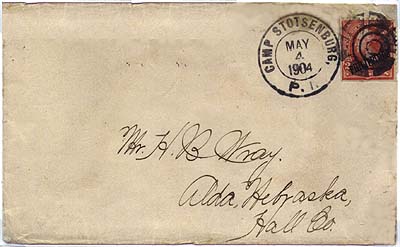 CAMP STOTSENBURG,
MAY
4
1904
P. I.
Mr. H. B Wray.
Alda, Nebraska,
Hall Co.